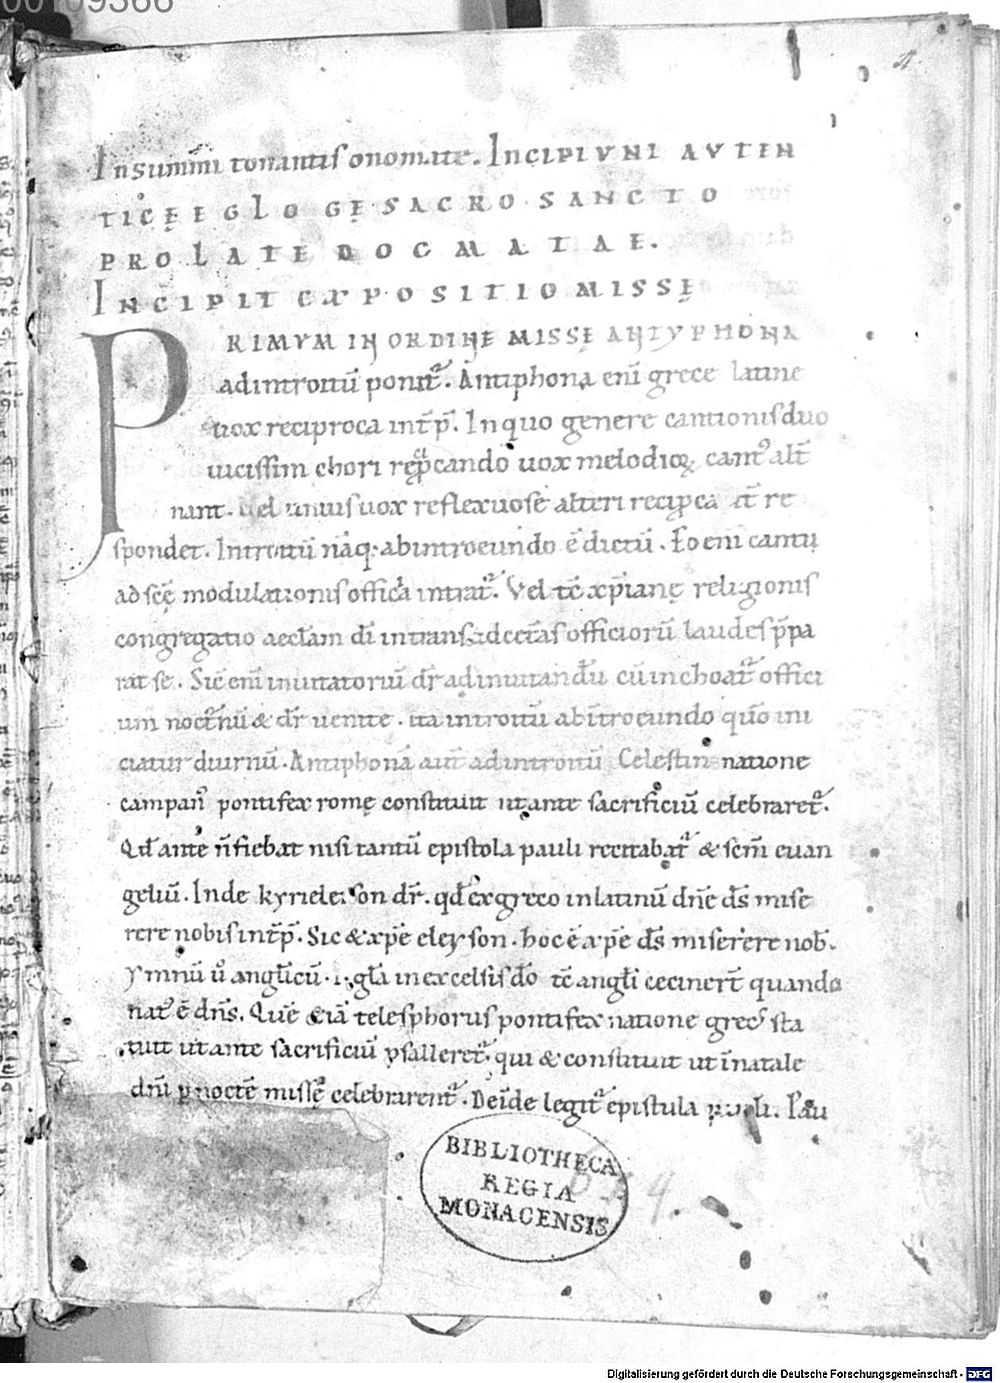 00109366
In summi tonantis onomate. INCIPIUNT AUTEN
TICĘ EGLOGĘ SACROSANCTO
PROLATE DOGMATAE.
INCIPIT EXPOSITIO MISSĘ
PRIMUM IN ORDINE MISSĘ ANTYPHONA
ad introitū ponit᷑. Antiphona eni᷑ grece latine
uox reciproca int̄p̄. In quo genere cantionis duo
uicissim chori rep̄cando uox melodioꝝ cantꝰ alt̄
nant. uel unius uox reflexuose alteri recip̄ca re
spondet. Introitū naq; ab introeundo ē dictū. Eo eni cantu
ad scę modulationis officia intrat᷑. Vel tc̄ xp̄ianę religionis
congregatio aeclam di intrans ad cet̄as officiorū laudes p̄pa
rat se. Sic eni inuitatoriū dr̄ ad inuitandū cū inchoat᷑ offici
um noct̄nū & dr̄ uenite. ita introitū ab introeundo quo ini
ciatur diurnū. Antiphonā aut̄ ad introitū Celestinꝰ natione
campanꝰ pontifex romę constituit ut ante sacrificiū celebraret᷑.
Qd̄ ante n̄ fiebat nisi tantū epistola pauli recitabat᷑ & scm̄ euan
geliū. Inde kyrieleison dr̄. qd̄ ex greco in latinū dn̄e ds̄ mise
rere nobis int̄p̄. Sic & xp̄e eleyson. hoc ē xp̄e ds̄ miserere nob̄.
ymnū u̅ angl̄icū .i. gl̄a in excelsis dō tc̄ angl̄i cecinert̄ quando
natꝰ ē dn̄s. Quē & iā telesphorus pontifex natione grecꝰ sta
tuit ut ante sacrificiū psalleret᷑. qui & constituit ut in natale
dn̄i p̱ noctē missę celebrarent᷑. Deīde legit᷑ epistula pauli. Pau
BIBLIOTHECA
REGIA
MONACENSIS
Digitalisierung gefördert durch die Deutsche Forschungsgemeinschaft - DFG